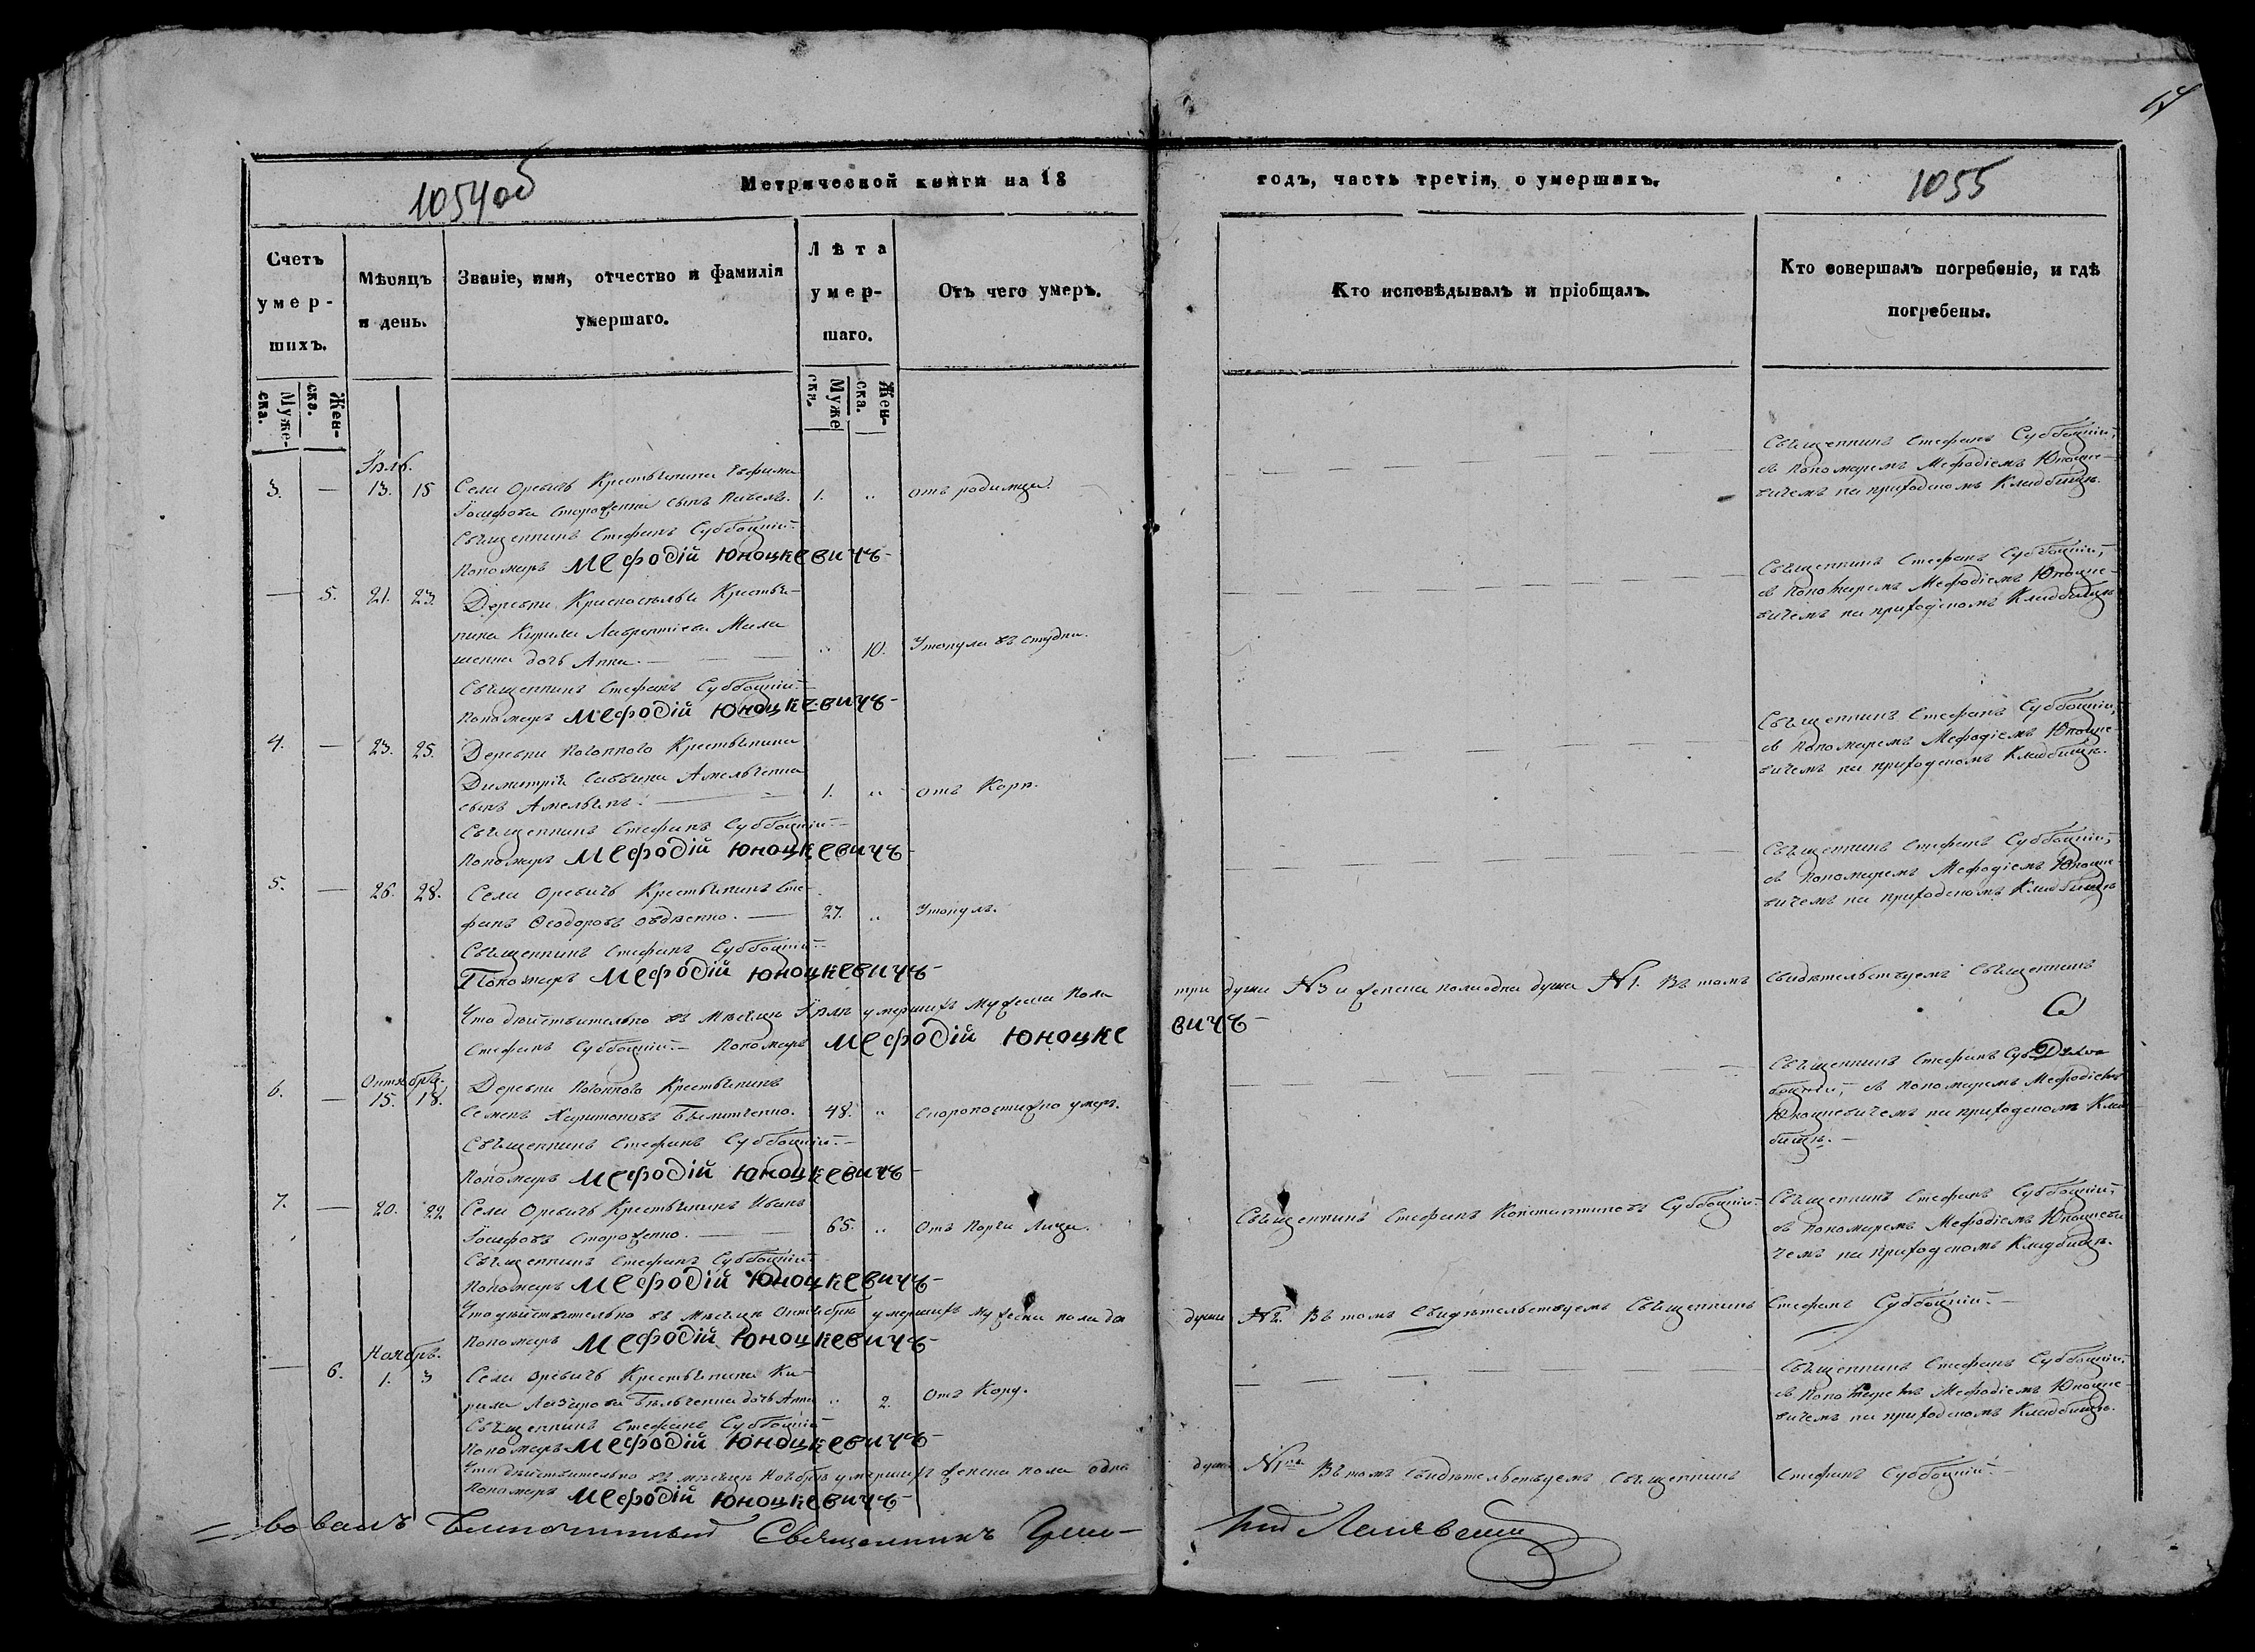 1054об
Метрической книги на 18
годъ, часть третія, о умершихъ.
1055
Счетъ умер- шихъ.
Муже- ска.
Жен- ска.
Мѣсяцъ и день.
Званіе, имя, отчество и фамилія умершаго.
Лѣта умер- шаго.
Муже ска.
Жен- ска.
Отъ чего умеръ.
Кто исповѣдывалъ и пріобщалъ.
Кто совершалъ погребеніе, и гдѣ погребены.
Іюль.
3. — 13. 15
Села Оревичь Крестьянина Ефима
Іосифова Стороженка сынъ Павелъ. 1. „ отъ родимца.
Священникъ Стефанъ Субботцкій,
съ пономаремъ Мефодіемъ Юноцке-
вичемъ на приходскомъ Кладбищѣ.
Священникъ Стефанъ Субботцкій.
Пономарь Мефодій Юноцкевичъ
— 5. 21. 23.
Деревни Красноселья Крестья-
нина Кирила Лаврентіева Мала
шенка дочь Анна. — „ 10. Утонула въ студни.
Священникъ Стефанъ Субботцкій,
съ пономаремъ Мефодіемъ Юноцке-
вичемъ на приходскомъ Кладбищѣ
Священникъ Стефанъ Субботцкій.
Пономарь Мефодій Юноцкевичъ
4. — 23. 25.
Деревни Погоннаго Крестьянина
Димитрія Саввина Амельченка
сынъ Амельянъ. — 1. „ отъ Кори.
Священникъ Стефанъ Субботцкій,
съ пономаремъ Мефодіемъ Юноцке-
вичемъ на приходскомъ Кладбищѣ.
Священникъ Стефанъ Субботцкій.
Пономарь Мефодій Юноцкевичъ
5. — 26. 28.
Села Оревичь Крестьянинъ Сте-
фанъ Ѳеодоровъ — 27. „ Утонулъ.
Священникъ Стефанъ Субботцкій,
съ пономаремъ Мефодіемъ Юноцке-
вичемъ на приходскомъ Кладбищѣ
Священникъ Стефанъ Субботцкій.
Пономарь Мефодій Юноцкевичъ
Что дѣйствительно въ Мѣсяцѣ Іюлѣ умершихъ Мужеска пола три души №3 и женска пола одна душа №1. Въ томъ свидѣтельствуемъ Священникъ
Стефанъ Субботцкій. — Пономарь Мефодій Юноцкевичъ
Октября.
6. — 15. 18.
Деревни Погоннаго Крестьянинъ
Семенъ Харитоновъ 48. „ Скоропостижно умеръ.
Священникъ Стефанъ Суб-
ботцкій, съ пономаремъ Мефодіемъ
Юноцкевичемъ на приходскомъ Клад
бищѣ. —
Священникъ Стефанъ Субботцкій. —
Пономарь Мефодій Юноцкевичъ
7. — 20. 22
Села Оревичь Крестьянинъ Иванъ
Іосифовъ Стороженко. — 65. „ Отъ Порчи Лица.
Священникъ Стефанъ Константиновъ Субботцкій.
Священникъ Стефанъ Субботцкій,
съ пономаремъ Мефодіемъ Юноцкеви
чемъ на приходскомъ Кладбищѣ.
Священникъ Стефанъ Субботцкій
Пономарь Мефодій Юноцкевичъ
Что дѣйствительно въ Мѣсяцѣ Октябрѣ умершихъ мужеска пола два души №2. Въ томъ Свидѣтельствуемъ Священникъ Стефанъ Субботцкій. —
Пономарь Мефодій Юноцкевичъ
Ноябрь.
— 6. 1. 3
Села Оревичь Крестьянина Ки-
рила Лазарова Бѣльченка дочь Анна „ 2. Отъ Кору.
Священникъ Стефанъ Субботцкій.
съ Пономаремъ Мефодіемъ Юноцке-
вичемъ на приходскомъ Кладбищѣ.
Священникъ Стефанъ Субботцкій
Пономарь Мефодій Юноцкевичъ
Что дѣйствительно въ мѣсяцѣ Ноябрѣ умершихъ женска пола одна душа №1 Въ томъ свидѣтельствуемъ Священникъ Стефанъ Субботцкій. —
Пономарь Мефодій Юноцкевичъ
вовалъ Благочинный Священникъ